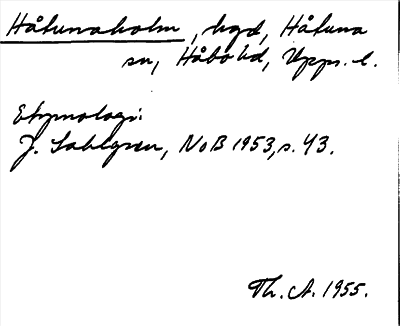 Håtunaholm, hgd, Håtuna
sn, Håbo hd, Upps. l.
Etymologi:
J. Sahlgren, NoB 1953, s. 43.
Th. A. 1955.